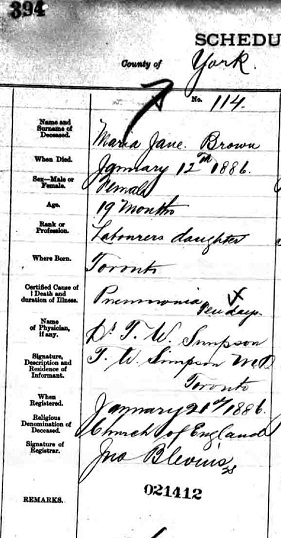 394
SCHEDU
County of York.
No. 114.
Name and Surname of Deceased. Maria Jane Brown
When Died. January 12th 1886.
Sex—Male or Female. Female
Age. 19 Months
Rank or Profession. Labourers daughter
Where Born. Toronto
Certified Cause of Death and duration of Illness. Pneumonia
X
Few days.
Name of Physician, if any. Dr T. W. Simpson
Signature, Description and Residence of Informant. T. W. Simpson M.D.
Toronto
When Registered. January 21st 1886.
Religious Denomination of Deceased. Church of England
Signature of Registrar. Jno Blevins
021412
REMARKS.